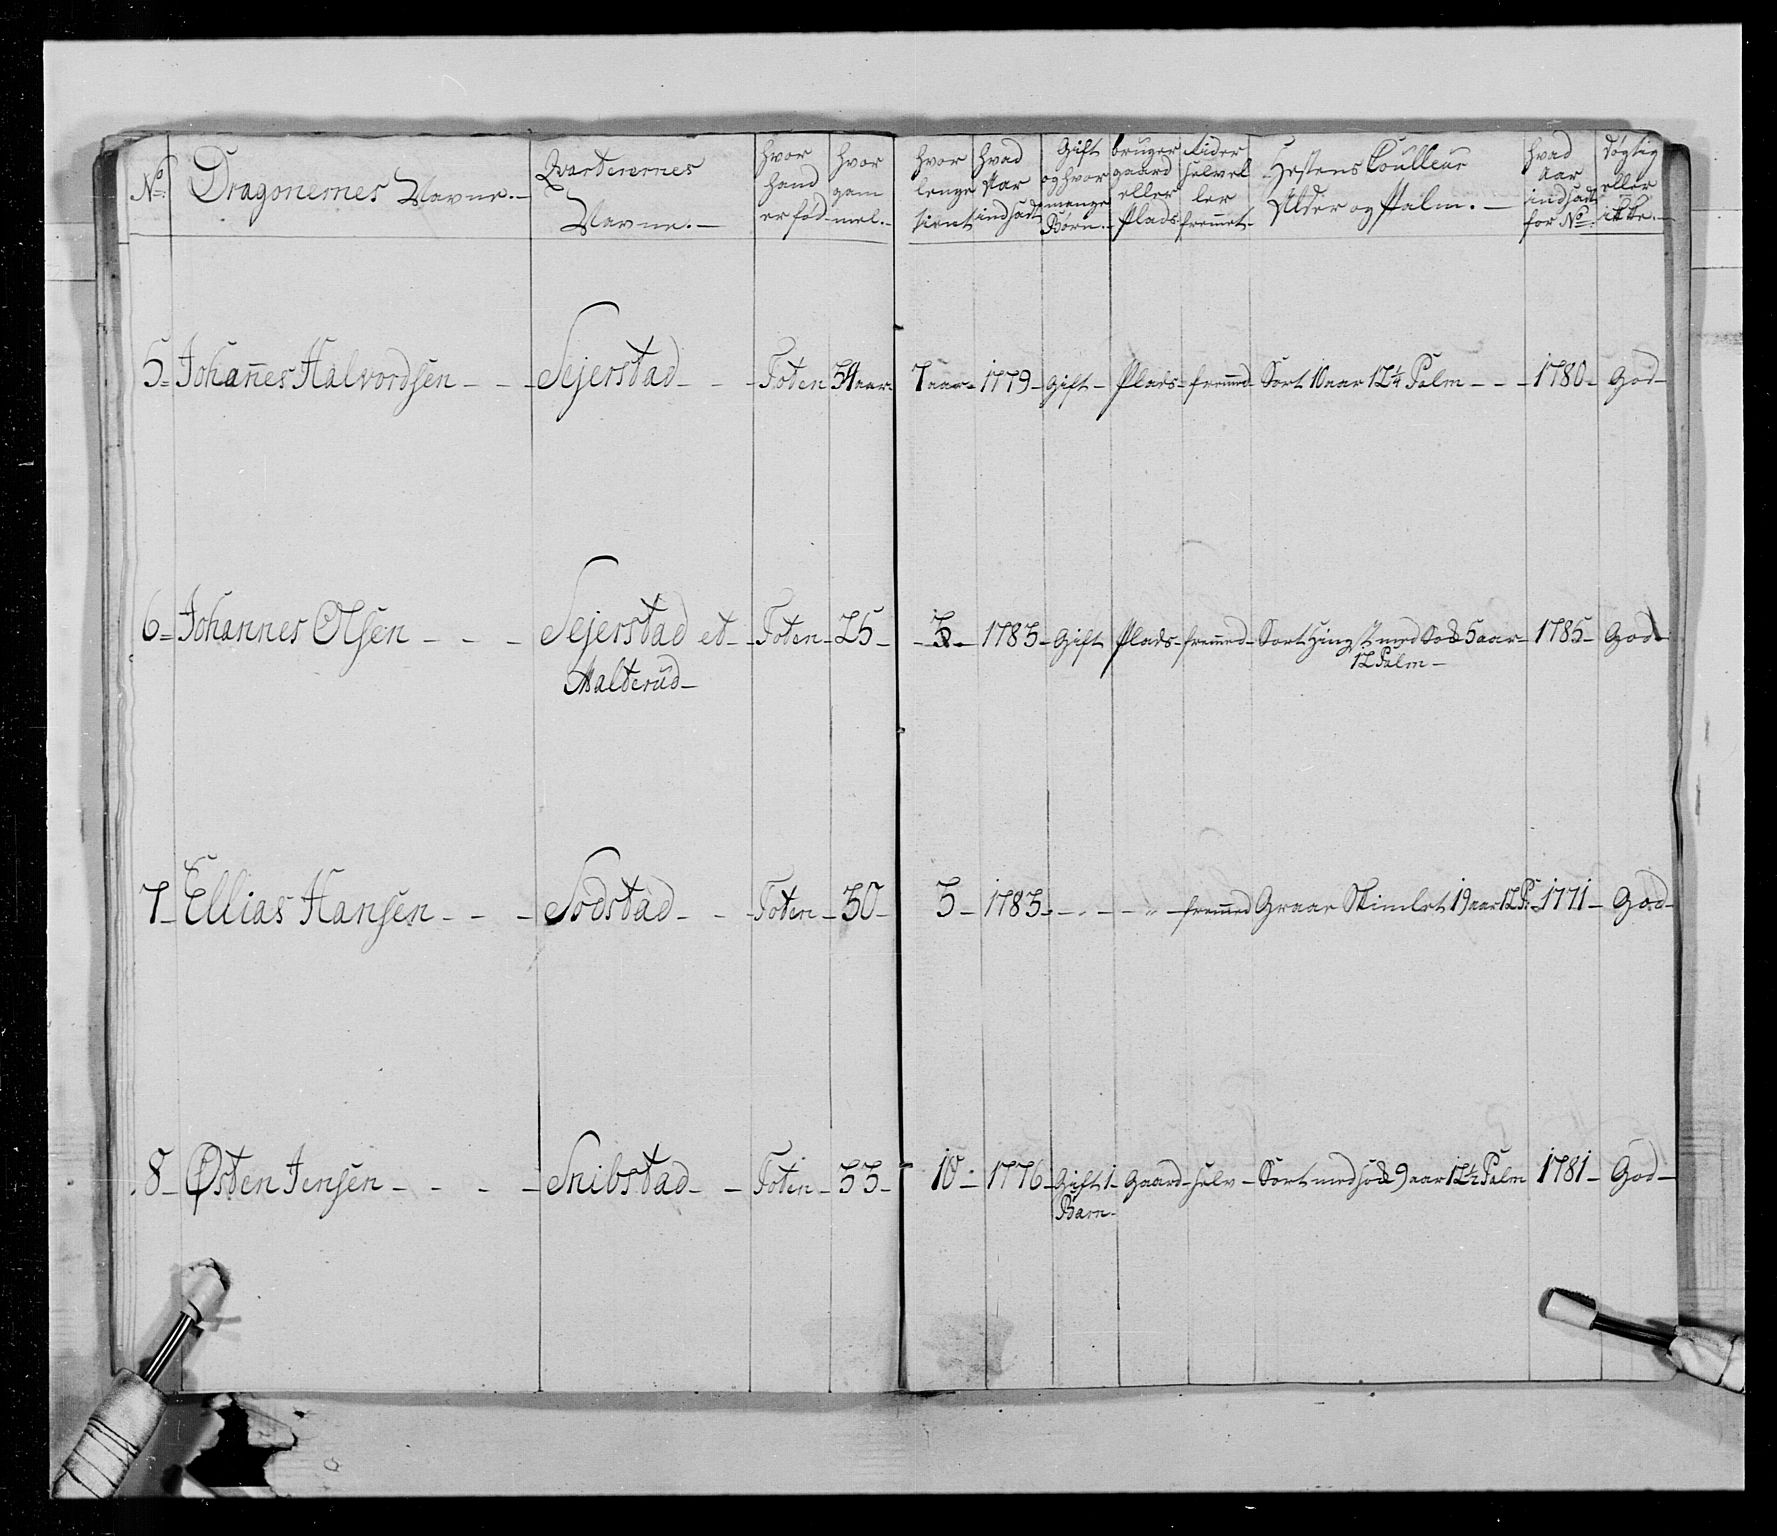 No. Dragonernes Navne. Qvarterernes Navne. hvor hand er fød hvor gam mel. hvor lenge tient hvad Aar indsadt Gift og hvor mange Børn. bruger gaard eller Plads rider selv el ler fremet Hestens Coulleur Alder og Palm. hvad Aar indsadt for No. døgtig eller ikke.
5 Johan̄es Halvordsen Sejerstad Toten 34 aar 7 aar 1779 Gift Plads frem̄ed Sort 10 aar 12¼ Palm 1780 God
6 Johannes Olsen Sejerstad et Toten 25 3 1783 Gift Plads frem̄ed Sort Hingst med Sod 5 aar 1785 God
Aalterud 12 Palm
7 Ellias Hansen Sodstad Toten 30 3 1783 frem̄ed Graae Skimlet 19 aar 12 P. 1771 God
8 Østen Jensen Snibstad Toten 33 10 1776 Gift 1 Gaard selv Sort med sod 9 aar 12½ Palm 1781 God
Barn